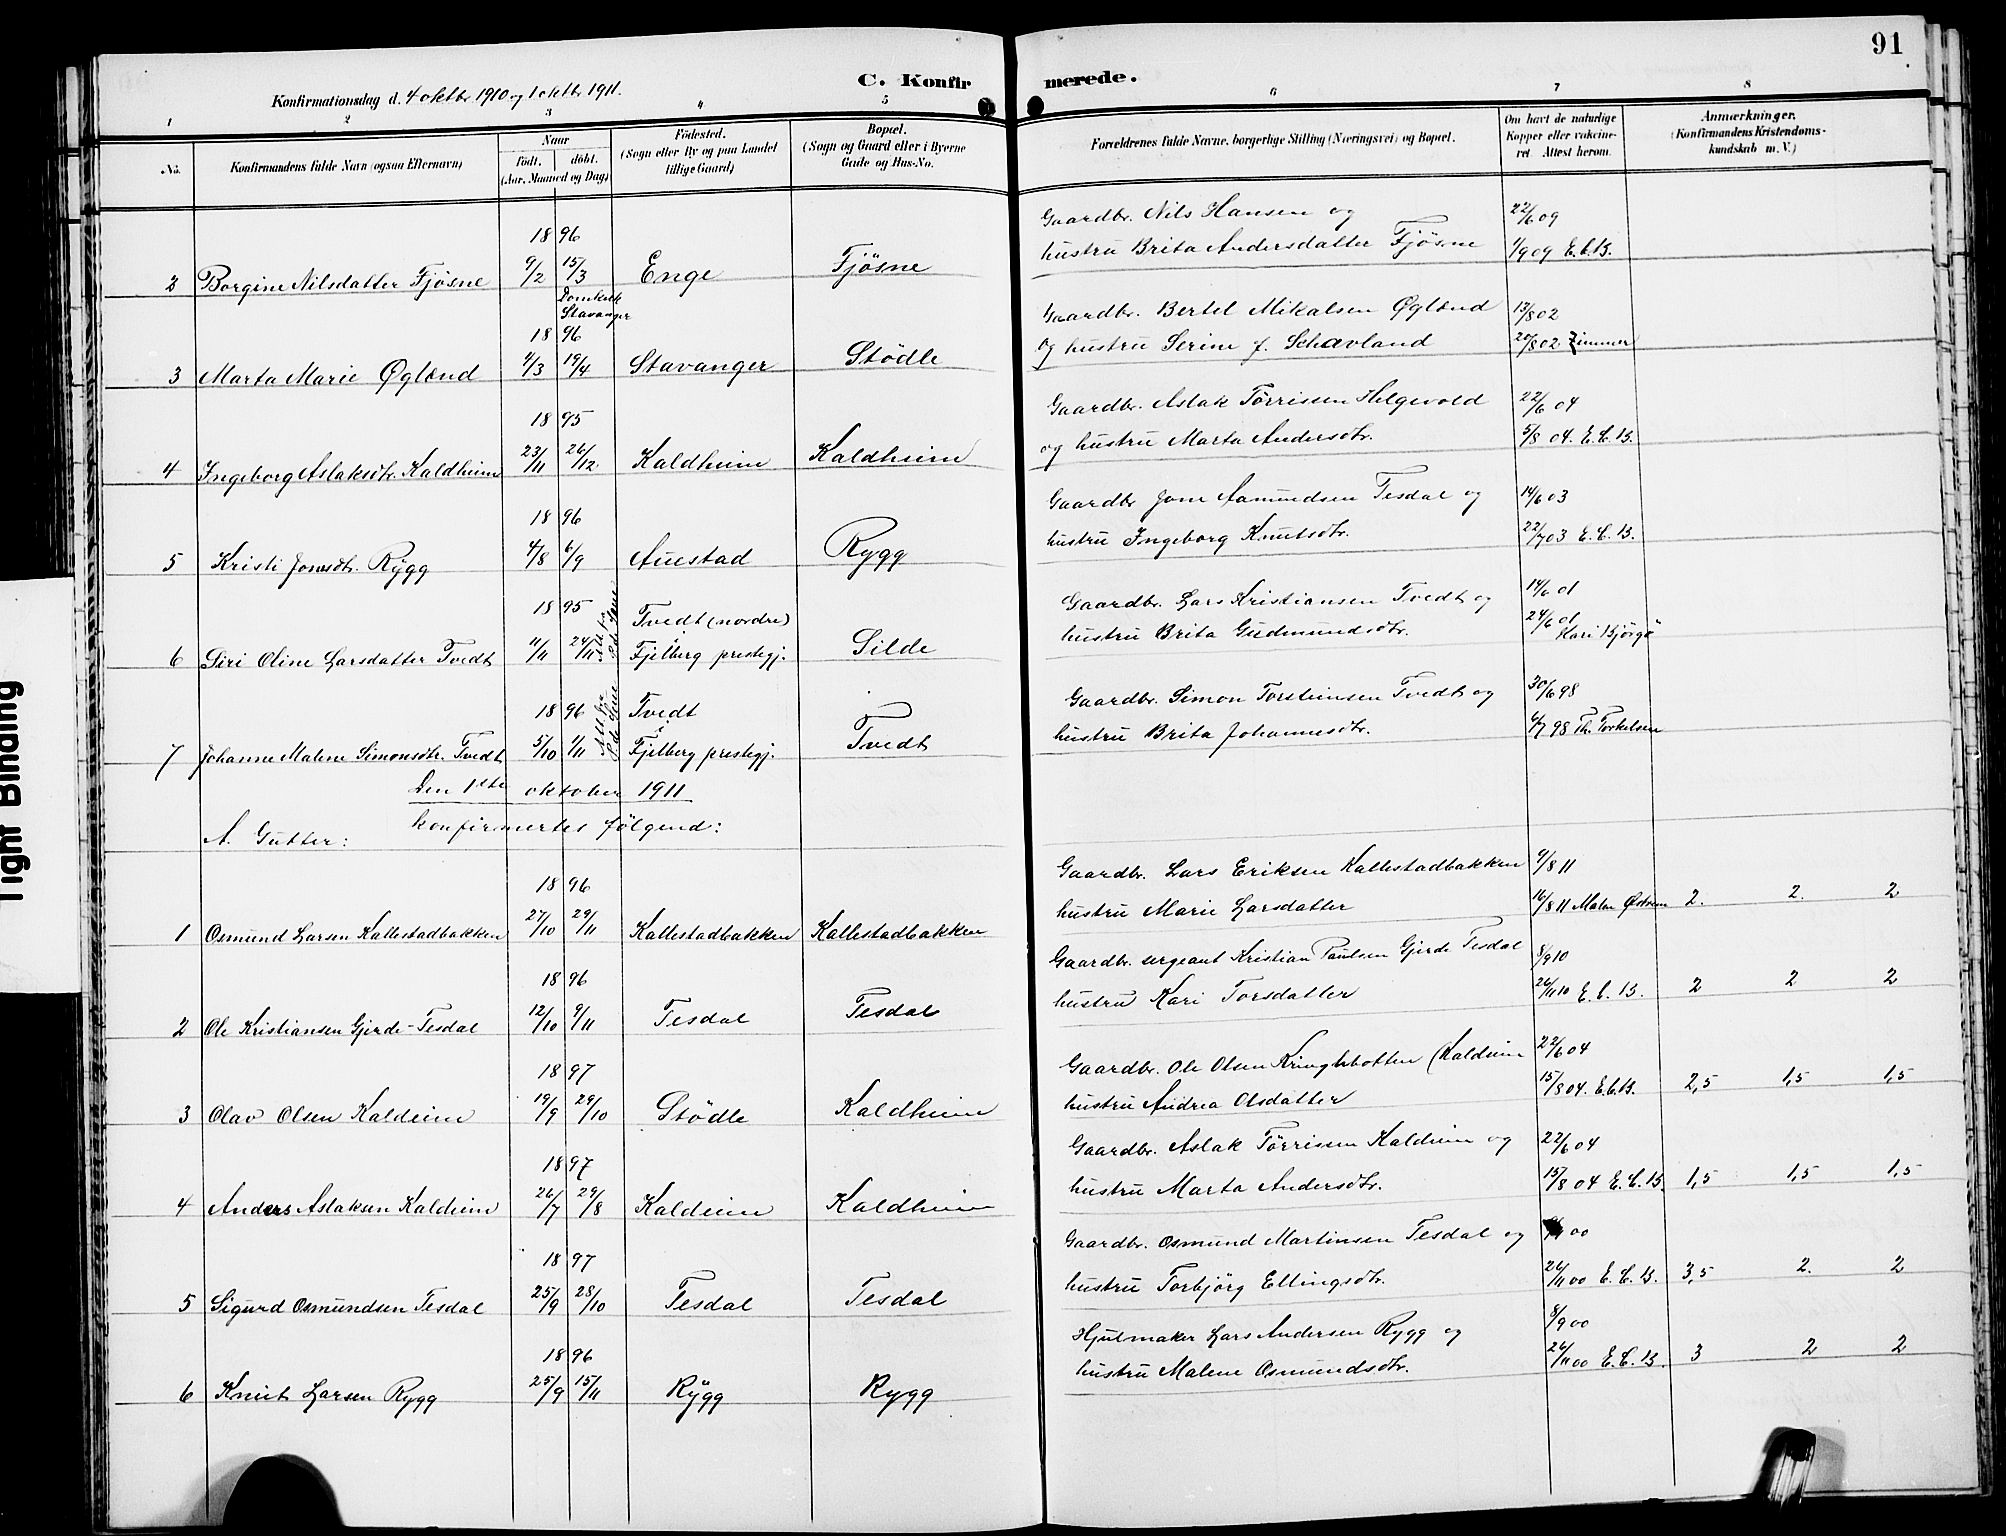 91
C. Konfirmerede.
Konfirmationsdag d. 4 oktbr. 1910 og 1 oktbr. 1911.
1 2 3 4 5 6 7 8
No.
Konfirmandens fulde Navn (ogsaa Efternavn)
Naar
födt. döbt.
(Aar, Maaned og Dag)
Födested.
(Sogn eller By og paa Landet
tillige Gaard)
Bopæl.
(Sogn og Gaard eller i Byerne
Gade og Hus-No.
Forældrenes fulde Navne, borgerlige Stilling (Næringsvei) og Bopæl.
Om havt de naturlige
Kopper eller vakcine-
ret. Attest herom.
Anmærkninger.
(Konfirmandens Kristendoms-
kundskab m. V.)
Gaardbr. Nils Hansen og 22/6 09
18 96
hustru Brita Andersdatter Fjösne 1/9 09 E.C.B.
2 Borgine Nilsdatter Fjösne 9/2 15/3 Enge Fjösne
Domkirk
Stavanger
Gaardbr. Bertel Mikalsen Øglænd 13/8 02
18 96
og hustru Serine f. Schævland 20/8 02 Zimmer
3 Marta Marie Øglænd 4/3 19/4 Stavanger Stödle
Gaardbr. Aslak Törrissen Helgevold 22/6 04
18 95
og hustru Marta Andersdtr. 5/8 04. E.C.B.
4 Ingeborg Aslaksdtr. Kaldheim 23/11 26/12 Kaldheim Kaldheim
Gaardbr Jone Aamundsen Tesdal og 14/6 03
18 96
hustru Ingeborg Knutsdtr. 22/7 03 E.C.B.
5 Kristi Jonsdtr. Rygg 4/8 6/9 Auestad Rygg
Gaardbr. Lars Kristiansen Tvedt og 14/6 01
18 95 Tvedt (nordre)
hustru Brita Gudmundsdtr. 24/6 01
Kari Bjorgö
6 Siri Oline Larsdatter Tvedt 11/11 24/11 Fjelberg prestegj. Silde
Gaardbr. Simon Torsteinsen Tvedt og 30/6 98
18 96 Tvedt
hustru Brita Johannesdtr. 6/7 98 Th. Torkelsen
7 Johanne Malene Simonsdtr. Tvedt 5/10 1/11 Fjelberg prestegj. Tvedt
Den 1ste oktober 1911
A. Gutter: konfirmertes følgend:
Gaardbr. Lars Eriksen Kallestadbakken 9/8 11
18 96
hustru Marie Larsdatter 16/8 11 2. 2. 2
1 Osmund Larsen Kallestadbakken 27/10 29/11 Kallestadbakken Kallestadbakken
Gaardbr. sergeant Kristian Paulsen Gjerde Tesdal 8/9 10
18 96
hustru Kari Torsdatter 26/11 10 E.C.B. 2 2 2
2 Ole Kristiansen Gjerde-Tesdal 12/10 9/11 Tesdal Tesdal
Gaardbr. Ole Olsen Kringlebotten (Kaldeim 22/6 04
18 97
hustru Andrea Olsdatter 15/8 04. E.C.B. 2,5 1,5 1,5
3 Olav Olsen Kaldeim 19/9 29/10 Stödle Kaldheim
Gaardbr. Aslak Törrissen Kaldeim og 22/6 04
18 97
hustru Marta Andersdtr. 15/8 04 E.C.B. 1,5 1,5 1,5
4 Anders Aslaksen Kaldeim 26/7 29/8 Kaldeim Kaldheim
Gaardbr. Osmund Martinsen Tesdal og 00
18 97
hustru Torbjörg Ellingsdtr. 26/11 00 E.C.B. 3,5 2. 2
5 Sigurd Osmundsen Tesdal 25/9 28/10 Tesdal Tesdal
Hjulmaker Lars Andersen Rygg og 8/9 00
18 96
hustru Malene Osmundsdtr. 26/11 00 E.C.B. 3 2 2
6 Knut Larsen Rygg 25/9 15/11 Rygg Rygg
Tight Binding